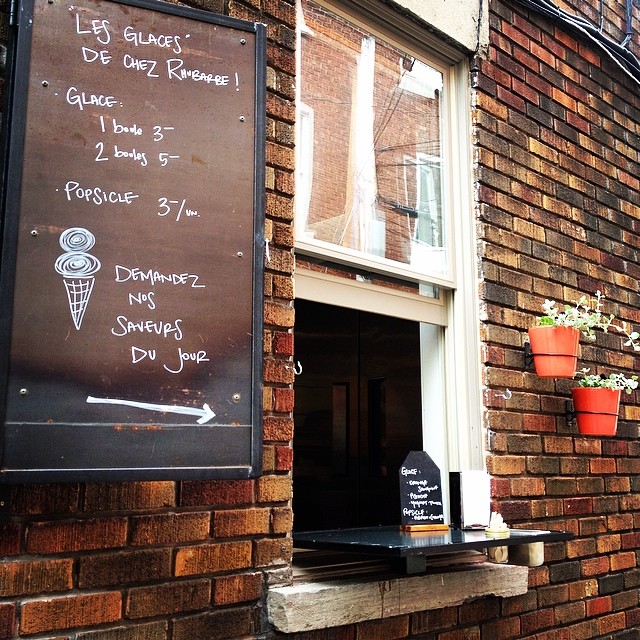 LES GLACES
DE CHEZ RHUBARBE!
GLACE:
1 boule 3-
2 boules 5-
POPSICLE 3-/un.
DEMANDEZ
NOS
SAVEURS
DU JOUR
GLACE:
POPSICLE